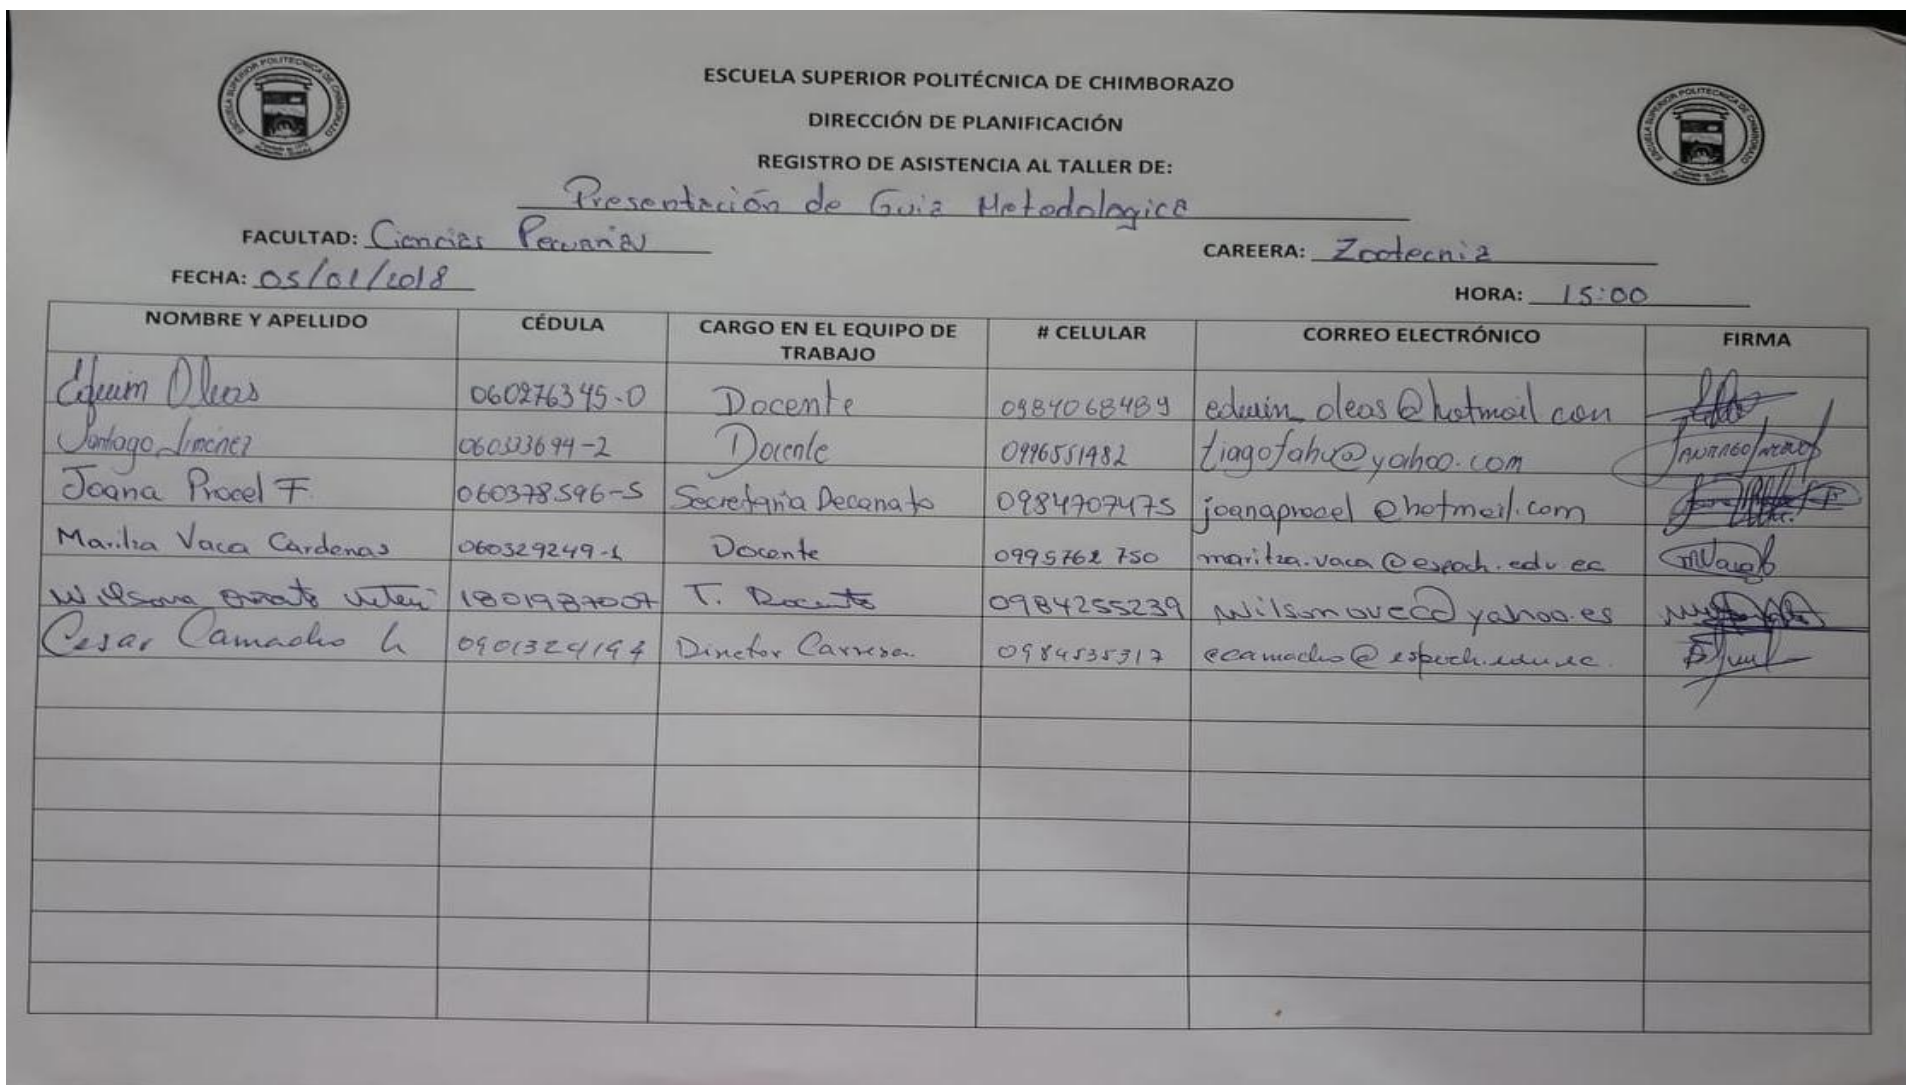 ESCUELA SUPERIOR POLITÉCNICA DE CHIMBORAZO
DIRECCIÓN DE PLANIFICACIÓN
REGISTRO DE ASISTENCIA AL TALLER DE:
Presentación de Guia Metodologica
FACULTAD: Ciencias Pecuarias CAREERA: Zootecnia
FECHA: 05/01/2018 HORA: 15:00
NOMBRE Y APELLIDO CÉDULA CARGO EN EL EQUIPO DE TRABAJO # CELULAR CORREO ELECTRÓNICO FIRMA
Oleas 060276345-0 Docente 0984068489 edwin_oleas@hotmail.com
Santiago Jimenez Docente 0996551482 tiagofahu@yahoo.com
Joana Procel F. 060378596-5 Secretaria Decanato 0984707475 joanaprocel@hotmail.com
Maritza Vaca Cardenas 060329249-1 Docente 0995762750 maritza.vaca@espoch.edu.ec
1801987007 T. Docente 0984255239 wilsonovec@yahoo.es
Cesar Camacho L Director Carrera. 0984535317 ecamacho@espoch.edu.ec.